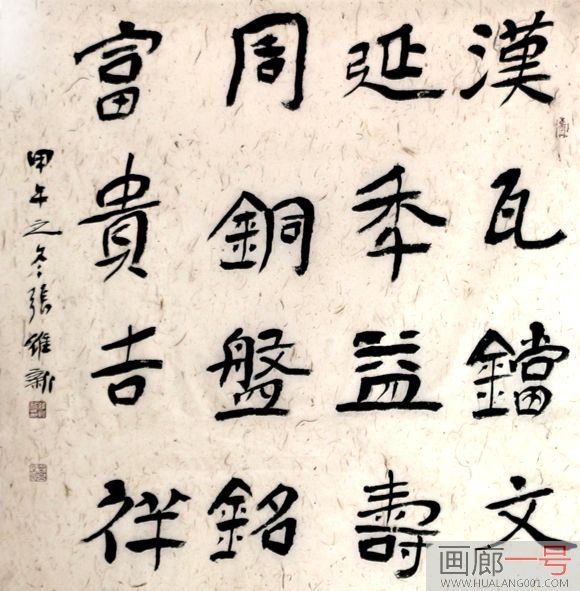 漢瓦鐺文
延秊益壽
周銅盤銘
富貴吉祥
甲午之冬張維新
画廊一号
WWW.HUALANG001.COM